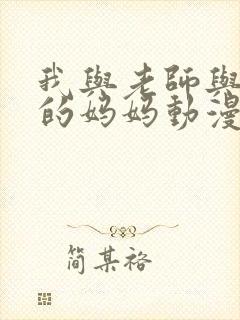 我與老師與
的妈妈動漫
简某裕